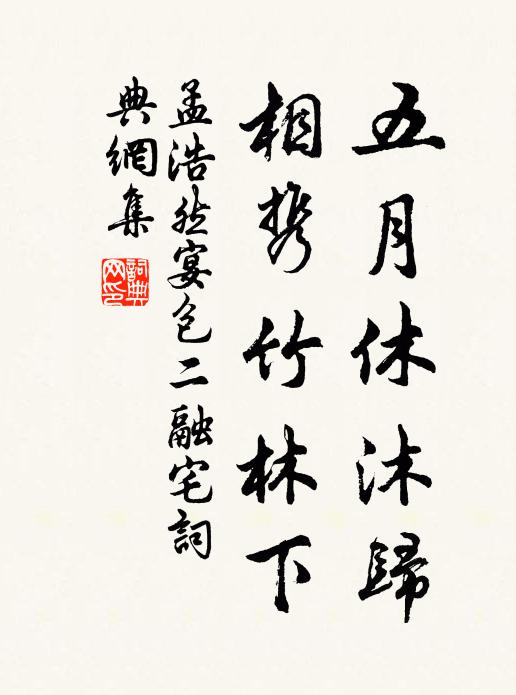 五月休沐歸
相携竹林下
孟浩然宴包二融宅詞
典網集
詞典
网印